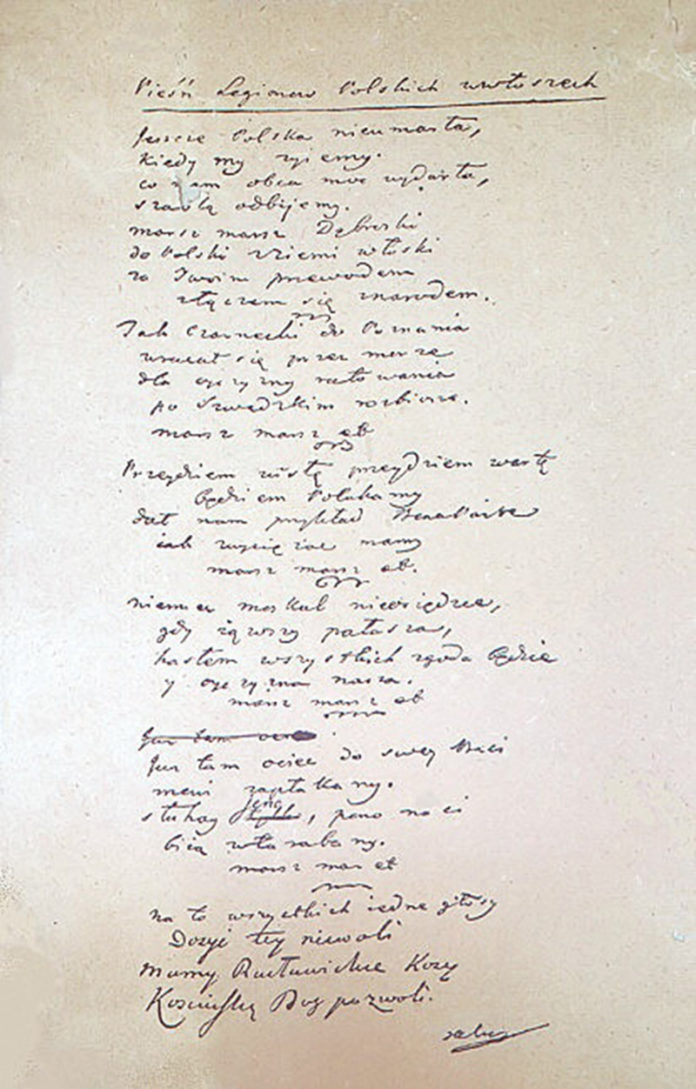 Pieśń Legionow Polskich wewłoszech
Jeszcze Polska nieumarła,
kiedy my żyiemy.
co nam obca moc wydarła,
szablą odbijemy.
marsz marsz Dąbroski
do Polski zziemi włoski
za Twoim przewodem
złączem się znarodem.
Jak Czarnecki do Poznania
wracał się przez morze
dla oyczyzny ratowania
po Szwedzkim rozbiorze.
marsz marsz et
Przeydziem wisłę przeydziem wartę
będziem Polakamy
dał nam przykład Bonaparte
iak zwycięzac mamy
marsz marsz et.
niemiec moskal nieosiędzie,
gdy iąwszy pałasza,
hasłem wszystkich zgoda będzie
y oyczyzna nasza.
marsz marsz et
Juz tam
Juz tam ociec do swey Basi
mowi zapłakany.
słuhay jeno, pono nasi
bią wtarabany.
marsz mar et
na to wszystkich iedne głosy
Dosyć tey niewoli
mamy Racławickie Kosy
Kosciuszkę Bog pozwoli.